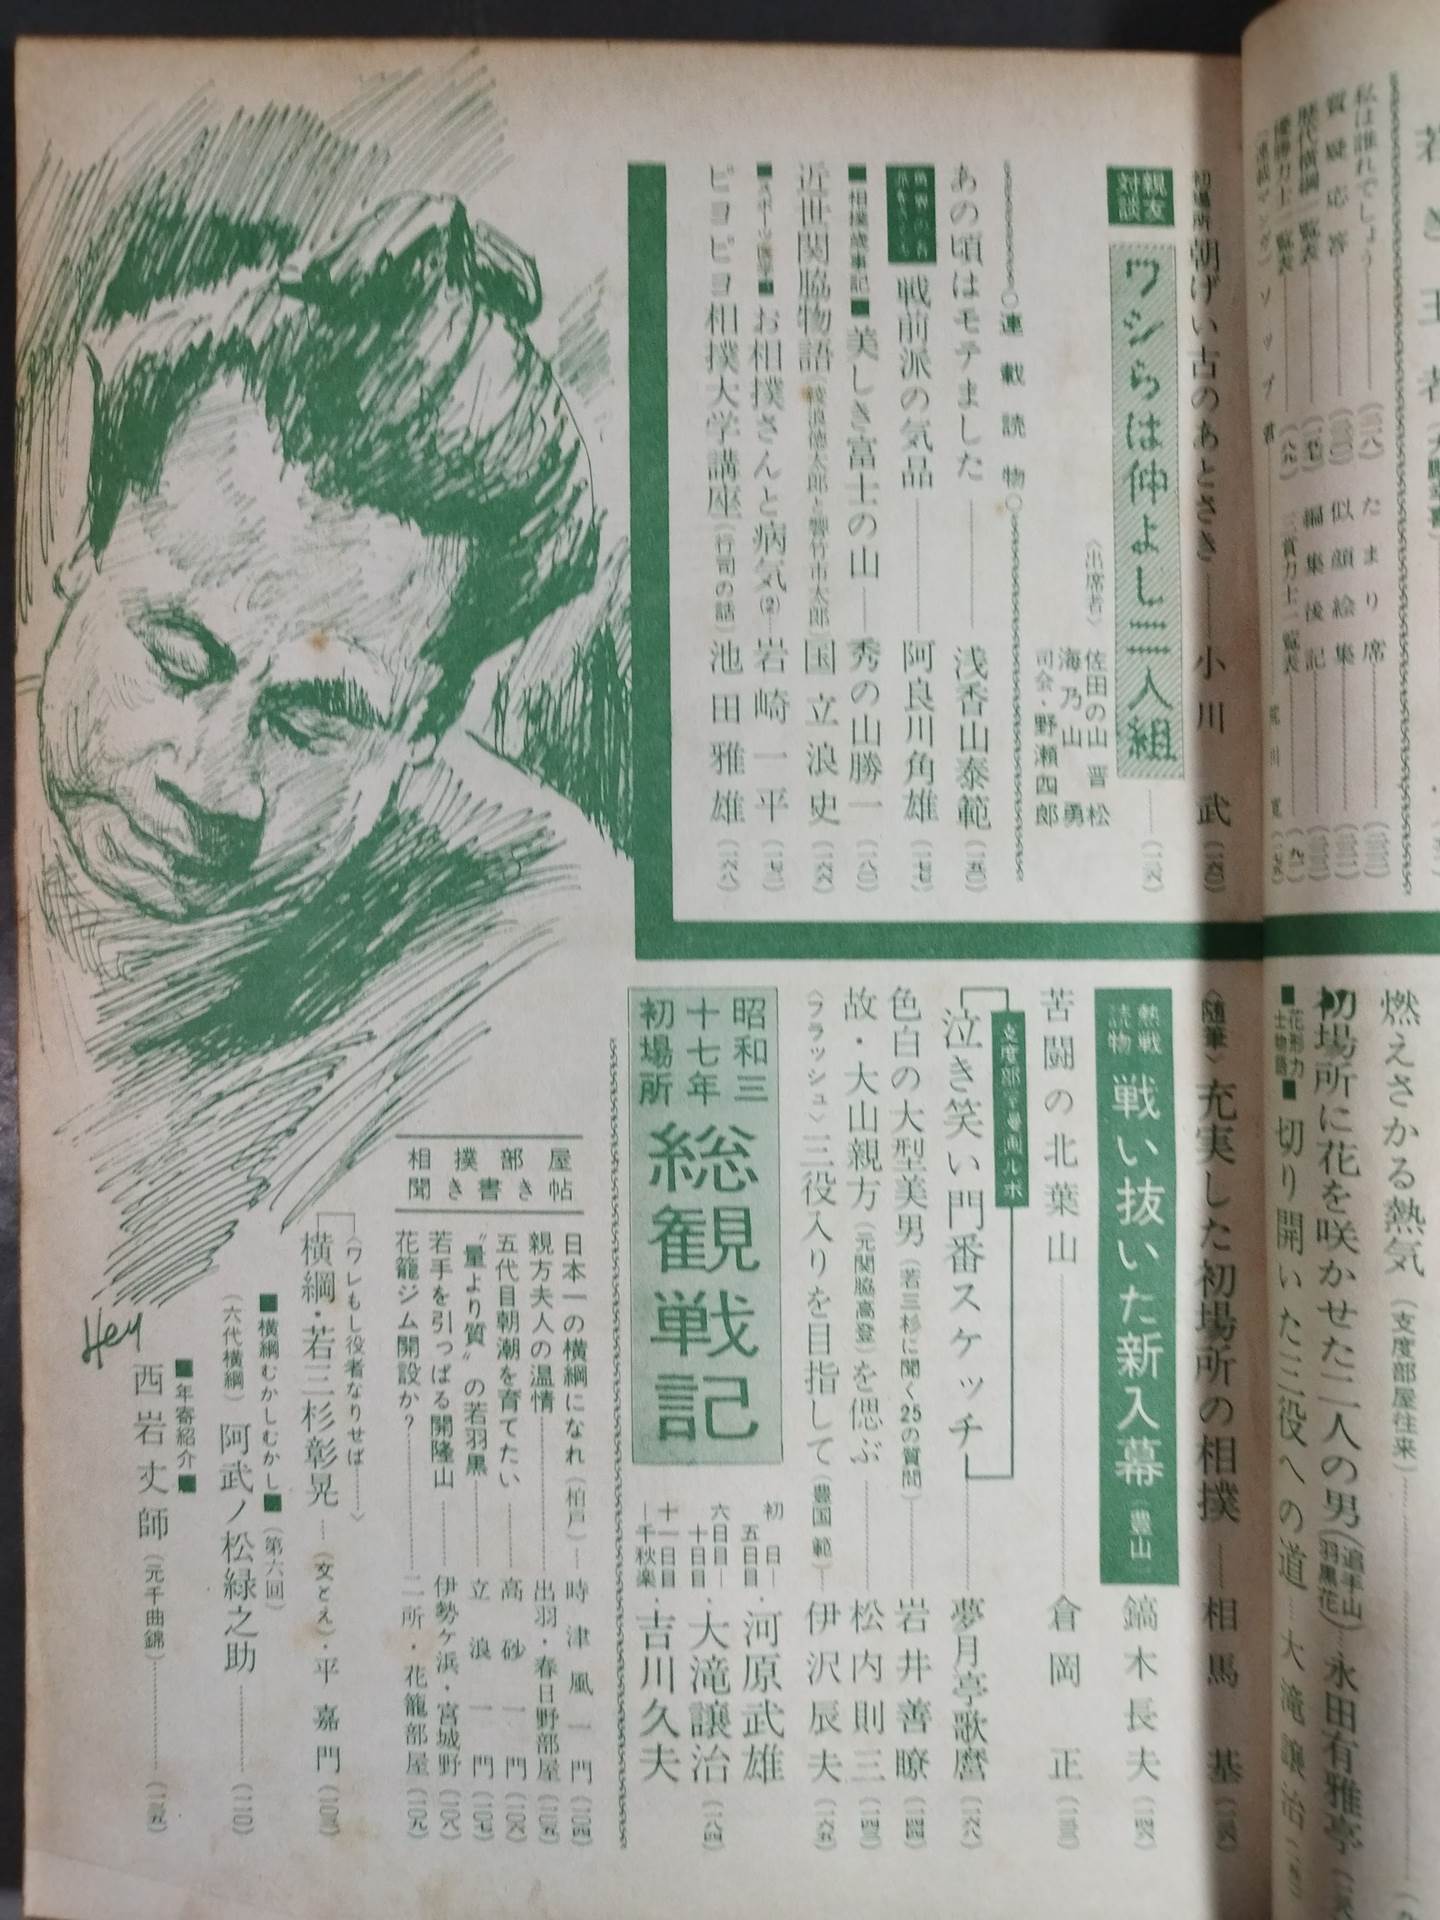 若き王者
私は誰れでしょう
たまり席
質疑応答
似顔絵集
歴代横綱一覧表
編集後記
優勝力士一覧表
三賞力士一覧表
初場所 朝げい古のあとさき……小川武
親友対談
ワシらは仲よし三人組
〈出席者〉
佐田の山晋松
海乃山勇
司会・野瀬四郎
○連載読物○
あの頃はモテました――浅香山泰範
戦前派の気品――阿良川角雄
■相撲歳事記■美しき富士の山――秀の山勝一
近世関脇物語(綾浪徳太郎と響竹市太郎)国立浪史
■スポーツ医学■お相撲さんと病気(2)…岩崎一平(一七二)
ピヨピヨ相撲大学講座(行司の話)池田雅雄(一六八)
燃えさかる熱気(支度部屋往来)
初場所に花を咲かせた二人の男(追手山 羽黒花)…永田有雅亭
■花形力士物語■切り開いた三役への道…大滝譲治
〈随筆〉充実した初場所の相撲……相馬基
熱戦読物 戦い抜いた新入幕(豊山)鏑木長夫(一四六)
苦闘の北葉山……倉岡正(一三二)
支度部屋漫画ルポ
泣き笑い門番スケッチ……夢月亭歌麿
色白の大型美男(若三杉に聞く25の質問)……岩井善暸(一四四)
故・大山親方(元関脇高登)を偲ぶ……松内則三(一四二)
〈フラッシュ〉三役入りを目指して(豊国範)…伊沢辰夫(一六五)
昭和三十七年初場所
総観戦記
初日―五日目・河原武雄
六日目―十日目・大滝譲治(一八四)
十一日目―千秋楽・吉川久夫
相撲部屋聞き書き帖
日本一の横綱になれ(柏戸)…時津風一門(一〇四)
親方夫人の温情……出羽・春日野部屋(一〇五)
五代目朝潮を育てたい……高砂一門(一〇六)
“量より質”の若羽黒……立浪一門(一〇七)
若手を引っぱる開隆山……伊勢ケ浜・宮城野(一〇八)
花籠ジム開設か?……二所・花籠部屋(一〇九)
〈ワレもし役者なりせば……〉
横綱・若三杉彰晃……(文とえ)・平嘉門
■横綱むかしむかし■(第六回)
(六代横綱)阿武ノ松緑之助……(一一〇)
■年寄紹介■
西岩丈師(元千曲錦)……(一三五)
Hey